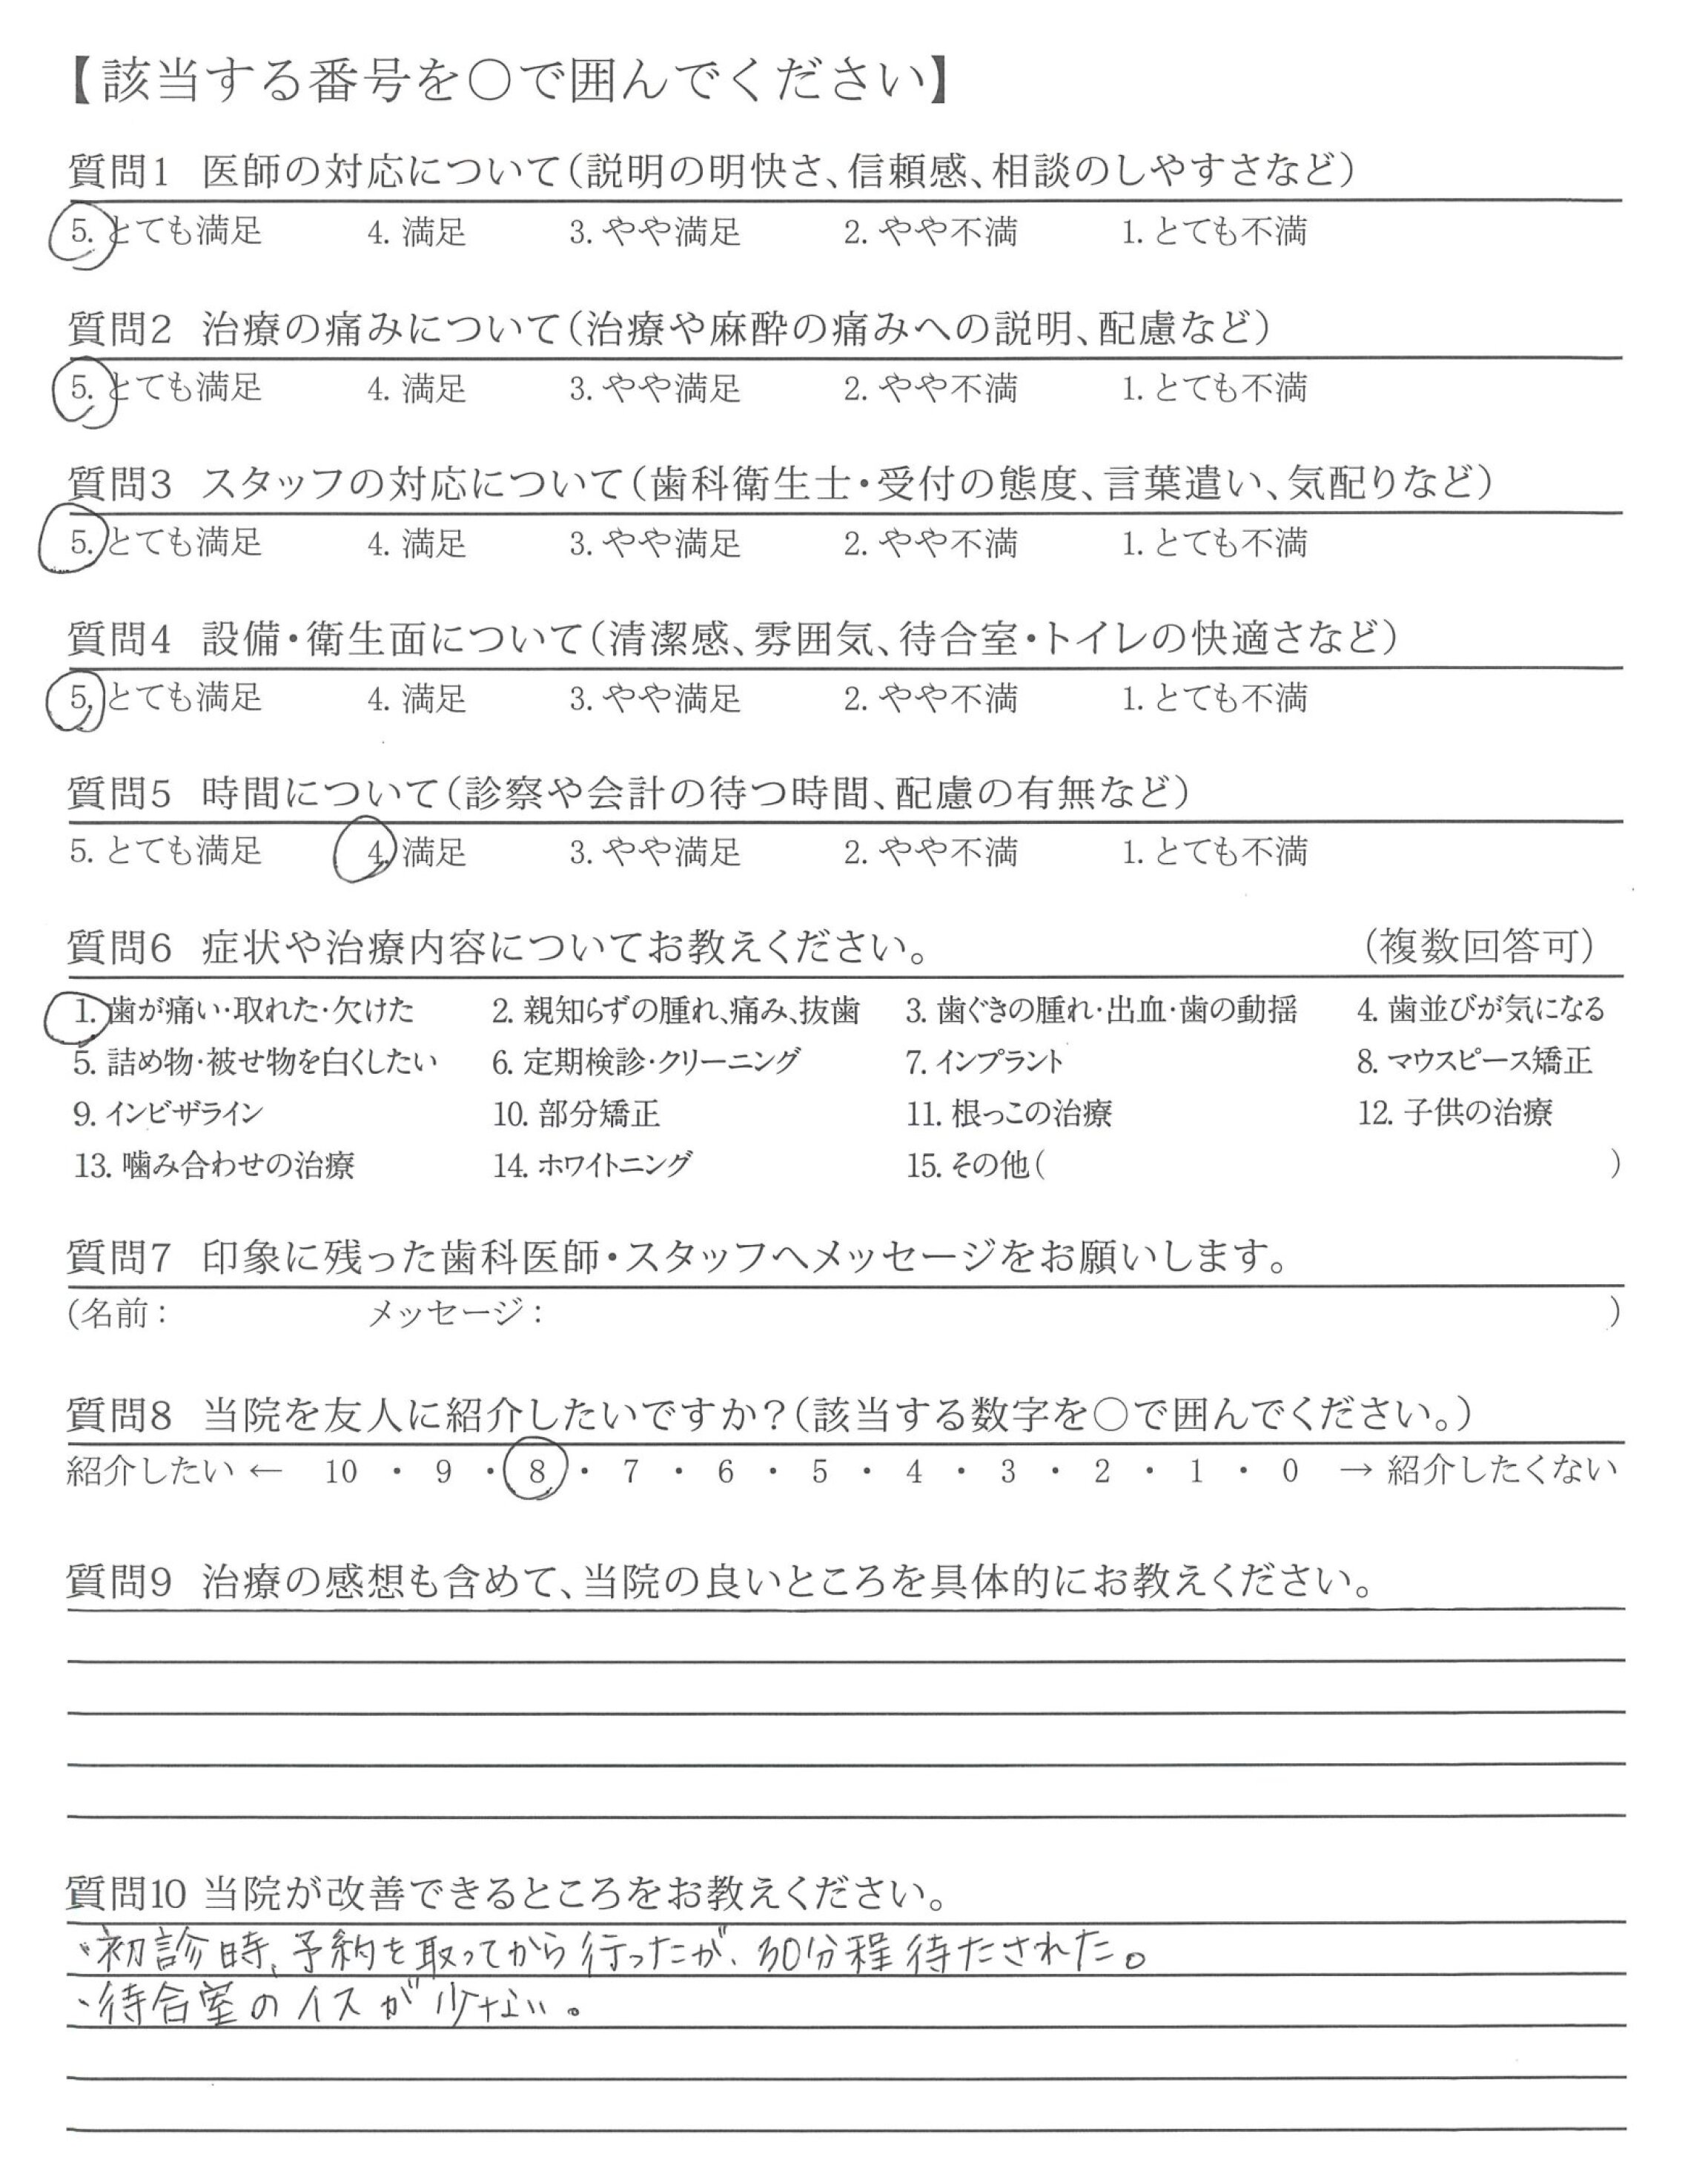 【該当する番号を○で囲んでください】
質問1 医師の対応について（説明の明快さ、信頼感、相談のしやすさなど）
5. とても満足 4. 満足 3. やや満足 2. やや不満 1. とても不満
質問2 治療の痛みについて（治療や麻酔の痛みへの説明、配慮など）
5. とても満足 4. 満足 3. やや満足 2. やや不満 1. とても不満
質問3 スタッフの対応について（歯科衛生士・受付の態度、言葉遣い、気配りなど）
5. とても満足 4. 満足 3. やや満足 2. やや不満 1. とても不満
質問4 設備・衛生面について（清潔感、雰囲気、待合室・トイレの快適さなど）
5. とても満足 4. 満足 3. やや満足 2. やや不満 1. とても不満
質問5 時間について（診察や会計の待つ時間、配慮の有無など）
5. とても満足 4. 満足 3. やや満足 2. やや不満 1. とても不満
質問6 症状や治療内容についてお教えください。 （複数回答可）
1. 歯が痛い・取れた・欠けた 2. 親知らずの腫れ、痛み、抜歯 3. 歯ぐきの腫れ・出血・歯の動揺 4. 歯並びが気になる
5. 詰め物・被せ物を白くしたい 6. 定期検診・クリーニング 7. インプラント 8. マウスピース矯正
9. インビザライン 10. 部分矯正 11. 根っこの治療 12. 子供の治療
13. 噛み合わせの治療 14. ホワイトニング 15. その他（ ）
質問7 印象に残った歯科医師・スタッフへメッセージをお願いします。
（名前： メッセージ： ）
質問8 当院を友人に紹介したいですか？（該当する数字を○で囲んでください。）
紹介したい ← 10 ・ 9 ・ 8 ・ 7 ・ 6 ・ 5 ・ 4 ・ 3 ・ 2 ・ 1 ・ 0 → 紹介したくない
質問9 治療の感想も含めて、当院の良いところを具体的にお教えください。
質問10 当院が改善できるところをお教えください。
・初診時、予約を取ってから行ったが、30分程待たされた。
・待合室のイスが少ない。